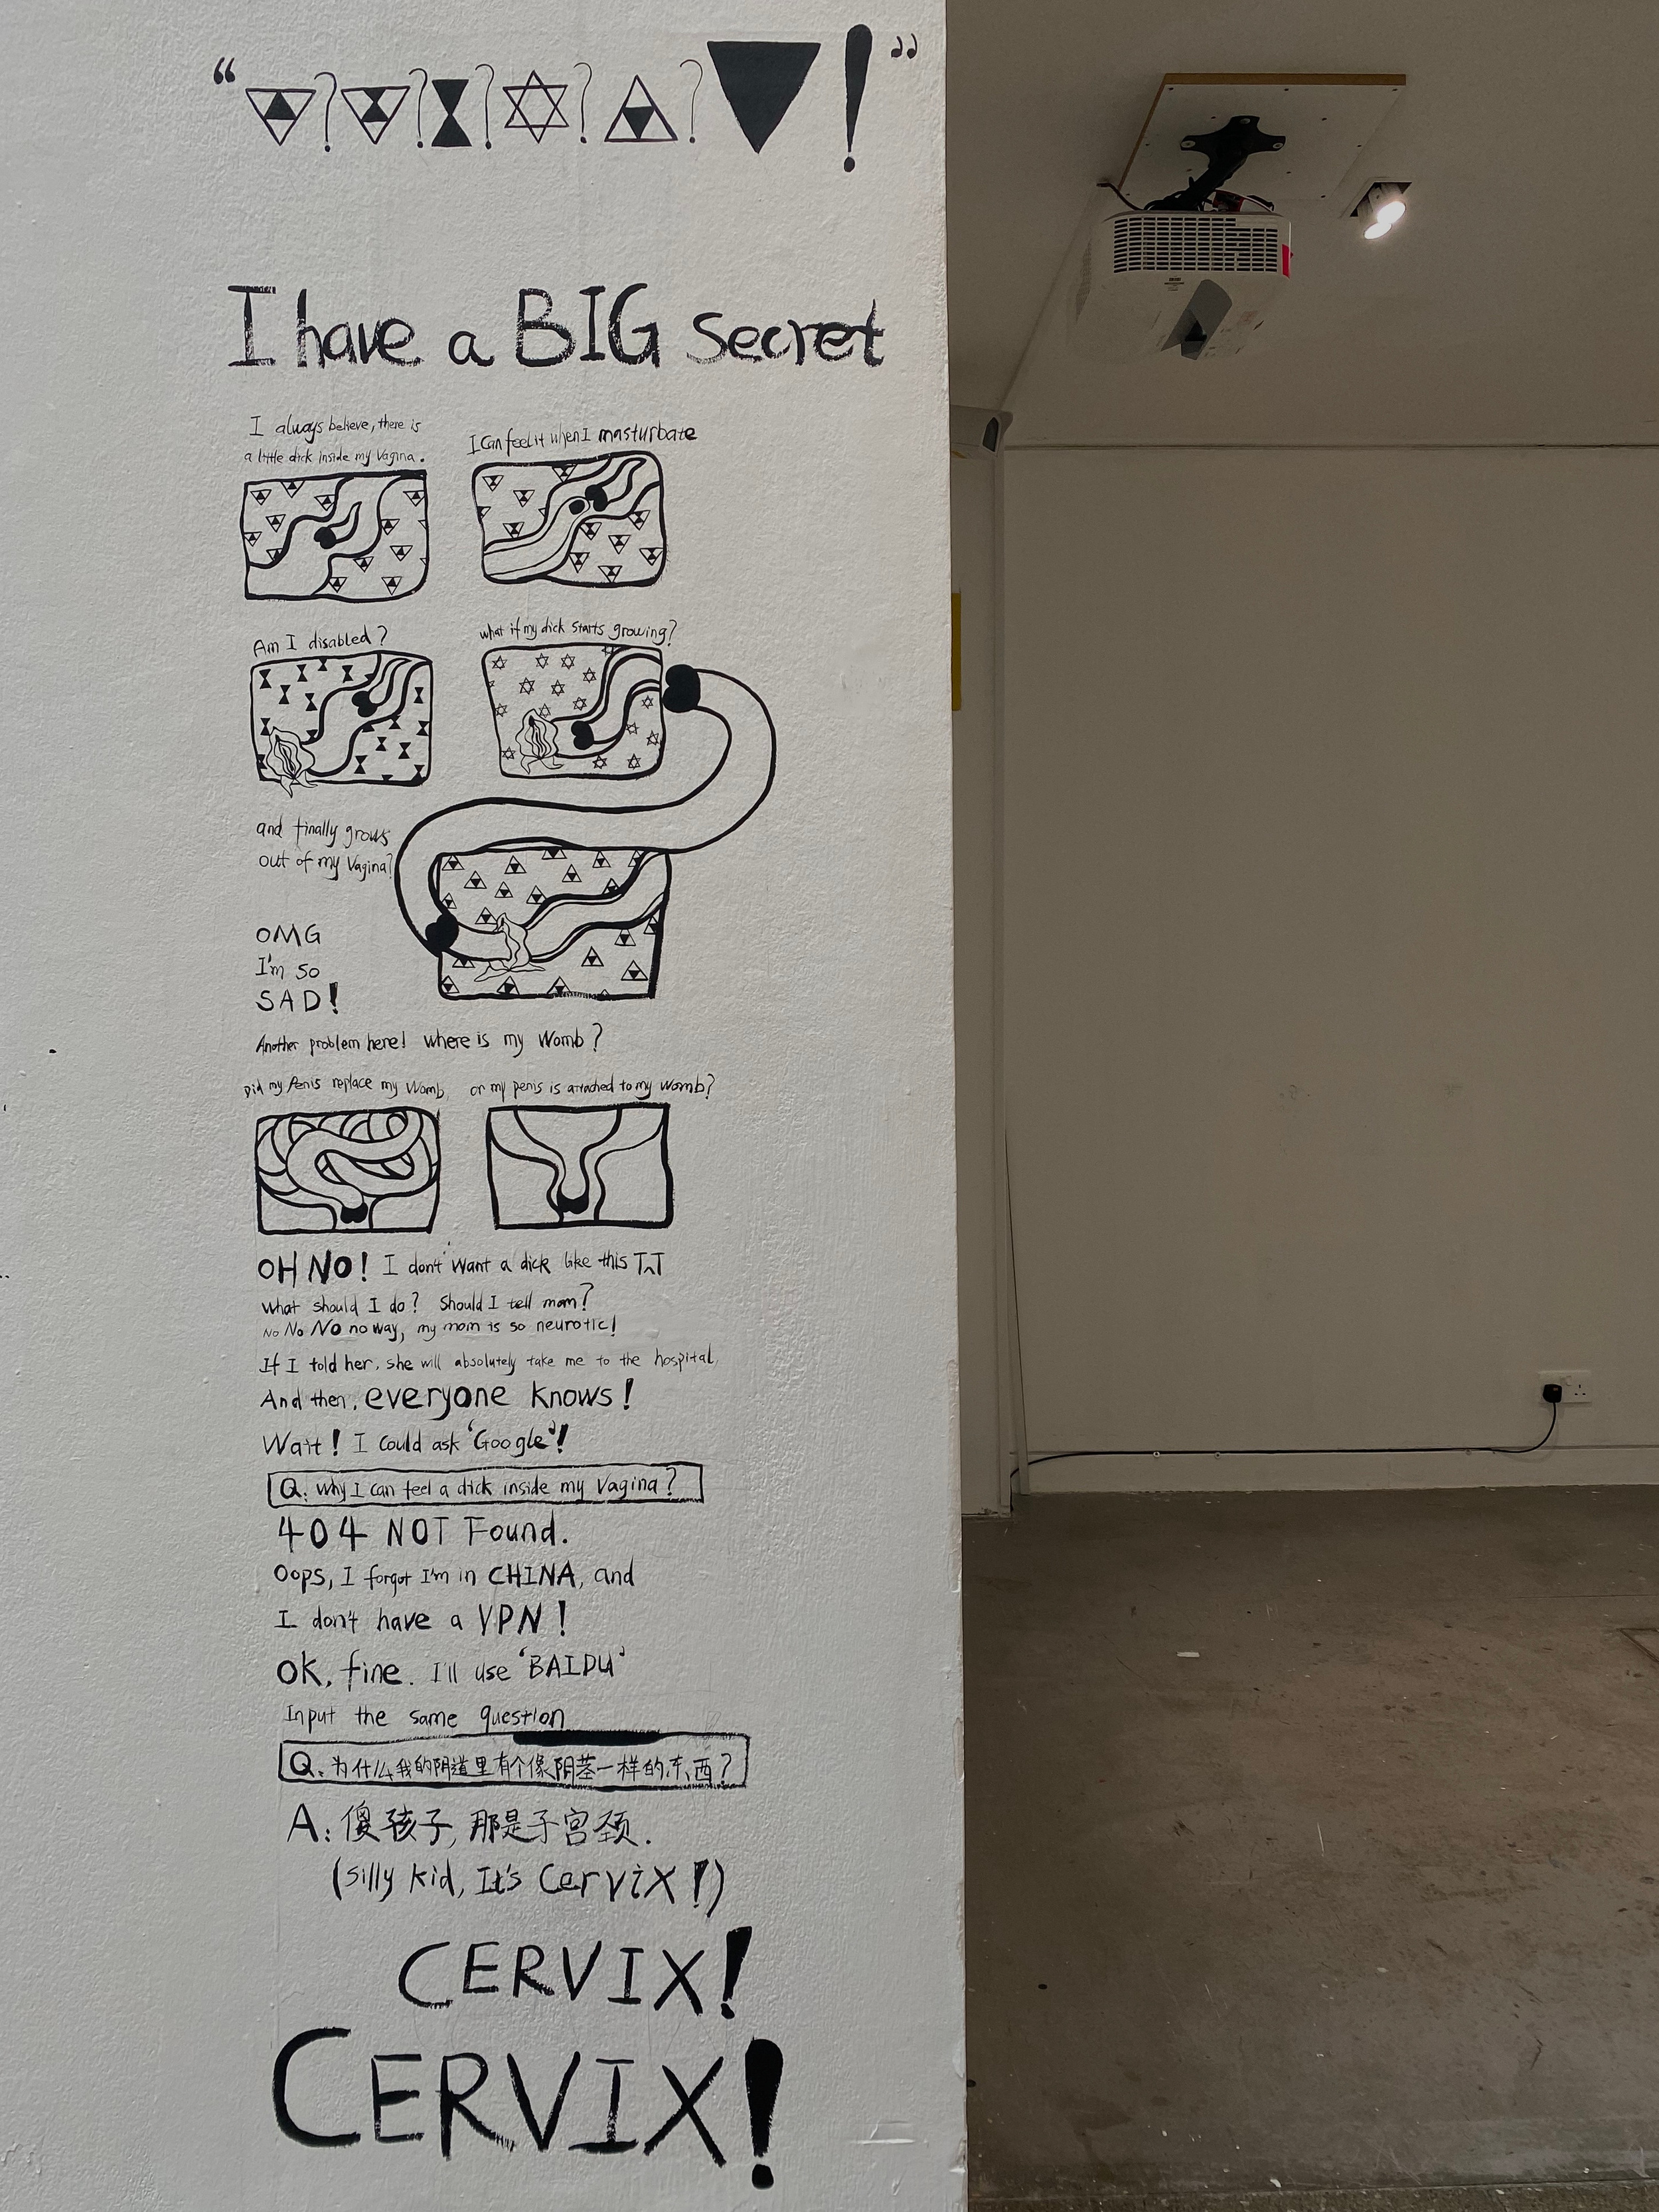 I have a BIG Secret
I always believe, there is
a little dick inside my Vagina.
I Can feel it when I masturbate
Am I disabled?
what if my dick starts growing?
and finally grows
out of my Vagina?
OMG
I'm so
SAD!
Another problem here! where is my Womb?
Did my Penis replace my Womb,
or my penis is attached to my womb?
OH NO! I don't want a dick like this T^T
What should I do? Should I tell mom?
No No No no way, my mom is so neurotic!
If I told her, she will absolutely take me to the hospital,
And then, everyone knows!
Wait! I could ask 'Google'!
Q: why I can feel a dick inside my Vagina?
404 NOT Found.
Oops, I forgot I'm in CHINA, and
I don't have a VPN!
OK, fine. I'll use 'BAIDU'
Input the same question
Q: 为什么我的阴道里有个像阴茎一样的东西?
A: 傻孩子, 那是子宫颈.
(silly kid, It's Cervix!)
CERVIX!
CERVIX!